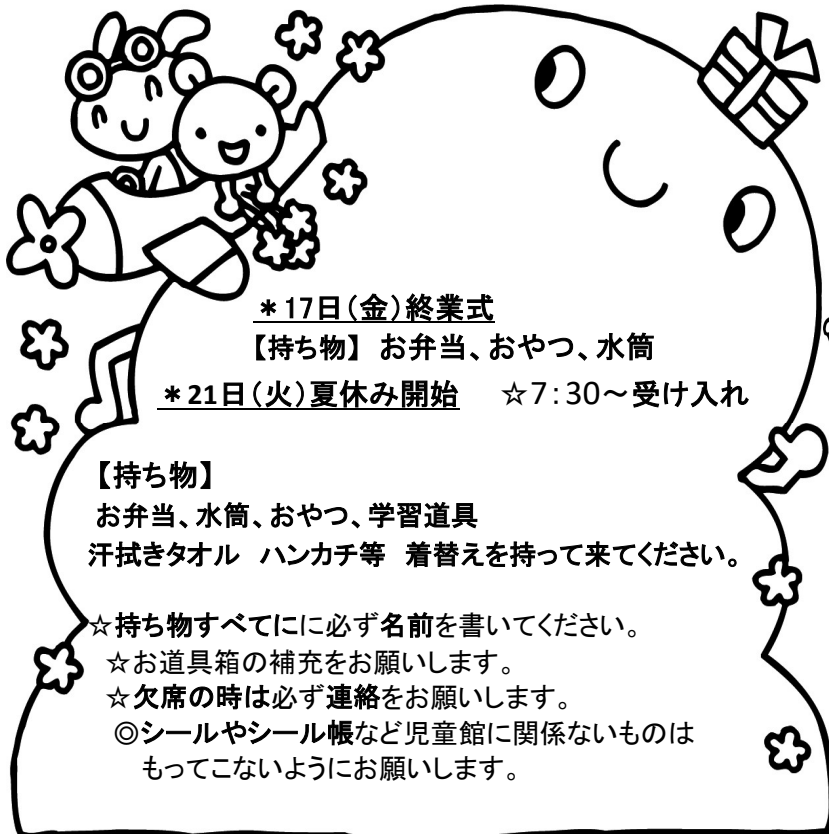 ＊17日（金）終業式
【持ち物】 お弁当、おやつ、水筒
＊21日（火）夏休み開始　☆7：30～受け入れ
【持ち物】
お弁当、水筒、おやつ、学習道具
汗拭きタオル　ハンカチ等　着替えを持って来てください。
☆持ち物すべてにに必ず名前を書いてください。
☆お道具箱の補充をお願いします。
☆欠席の時は必ず連絡をお願いします。
◎シールやシール帳など児童館に関係ないものは
もってこないようにお願いします。